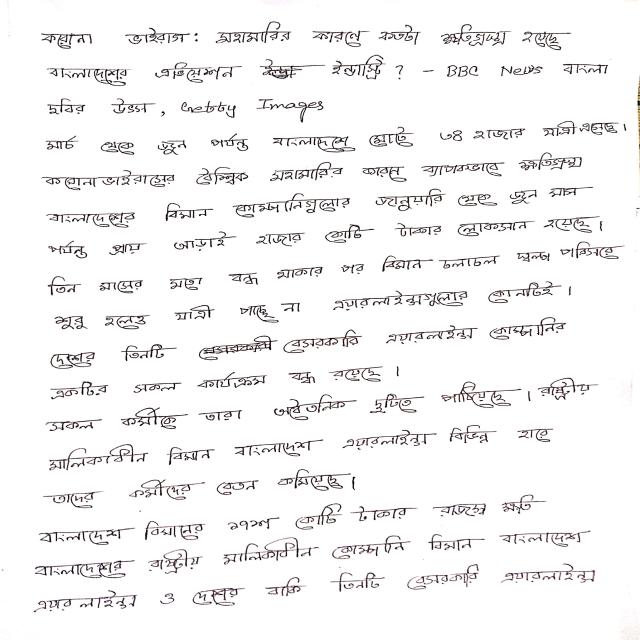 করোনা ভাইরাস: মহামারির কারণে কতটা ক্ষতিগ্রস্ত হয়েছে
বাংলাদেশের এভিয়েশন ইন্ডাস্ট্রি ? - BBC News বাংলা
ছবির উৎস, Getty Images
মার্চ থেকে জুন পর্যন্ত বাংলাদেশে মোট ৩৪ হাজার যাত্রী এসেছে।
করোনাভাইরাসের বৈশ্বিক মহামারির কারণে ব্যাপকভাবে ক্ষতিগ্রস্ত
বাংলাদেশের বিমান কোম্পানিগুলোর জানুয়ারি থেকে জুন মাস
পর্যন্ত প্রায় আড়াই হাজার কোটি টাকার লোকসান হয়েছে।
তিন মাসের মতো বন্ধ থাকার পর বিমান চলাচল স্বল্প পরিসরে
শুরু হলেও যাত্রী পাচ্ছে না এয়ারলাইন্সগুলোর কোনটিই।
দেশের তিনটি বেসরকারি এয়ারলাইন্স কোম্পানির
একটির সকল কার্যক্রম বন্ধ রয়েছে।
সকল কর্মীকে তারা অবৈতনিক ছুটিতে পাঠিয়েছে। রাষ্ট্রীয়
মালিকাধীন বিমান বাংলাদেশ এয়ারলাইন্স বিভিন্ন হারে
তাদের কর্মীদের বেতন কমিয়েছে।
বাংলাদেশ বিমানের কোটি টাকার রাজস্ব ক্ষতি
বাংলাদেশের রাষ্ট্রীয় মালিকাধীন কোম্পানি বিমান বাংলাদেশ
এয়ারলাইন্স ও দেশের বাকি তিনটি বেসরকারি এয়ারলাইন্স